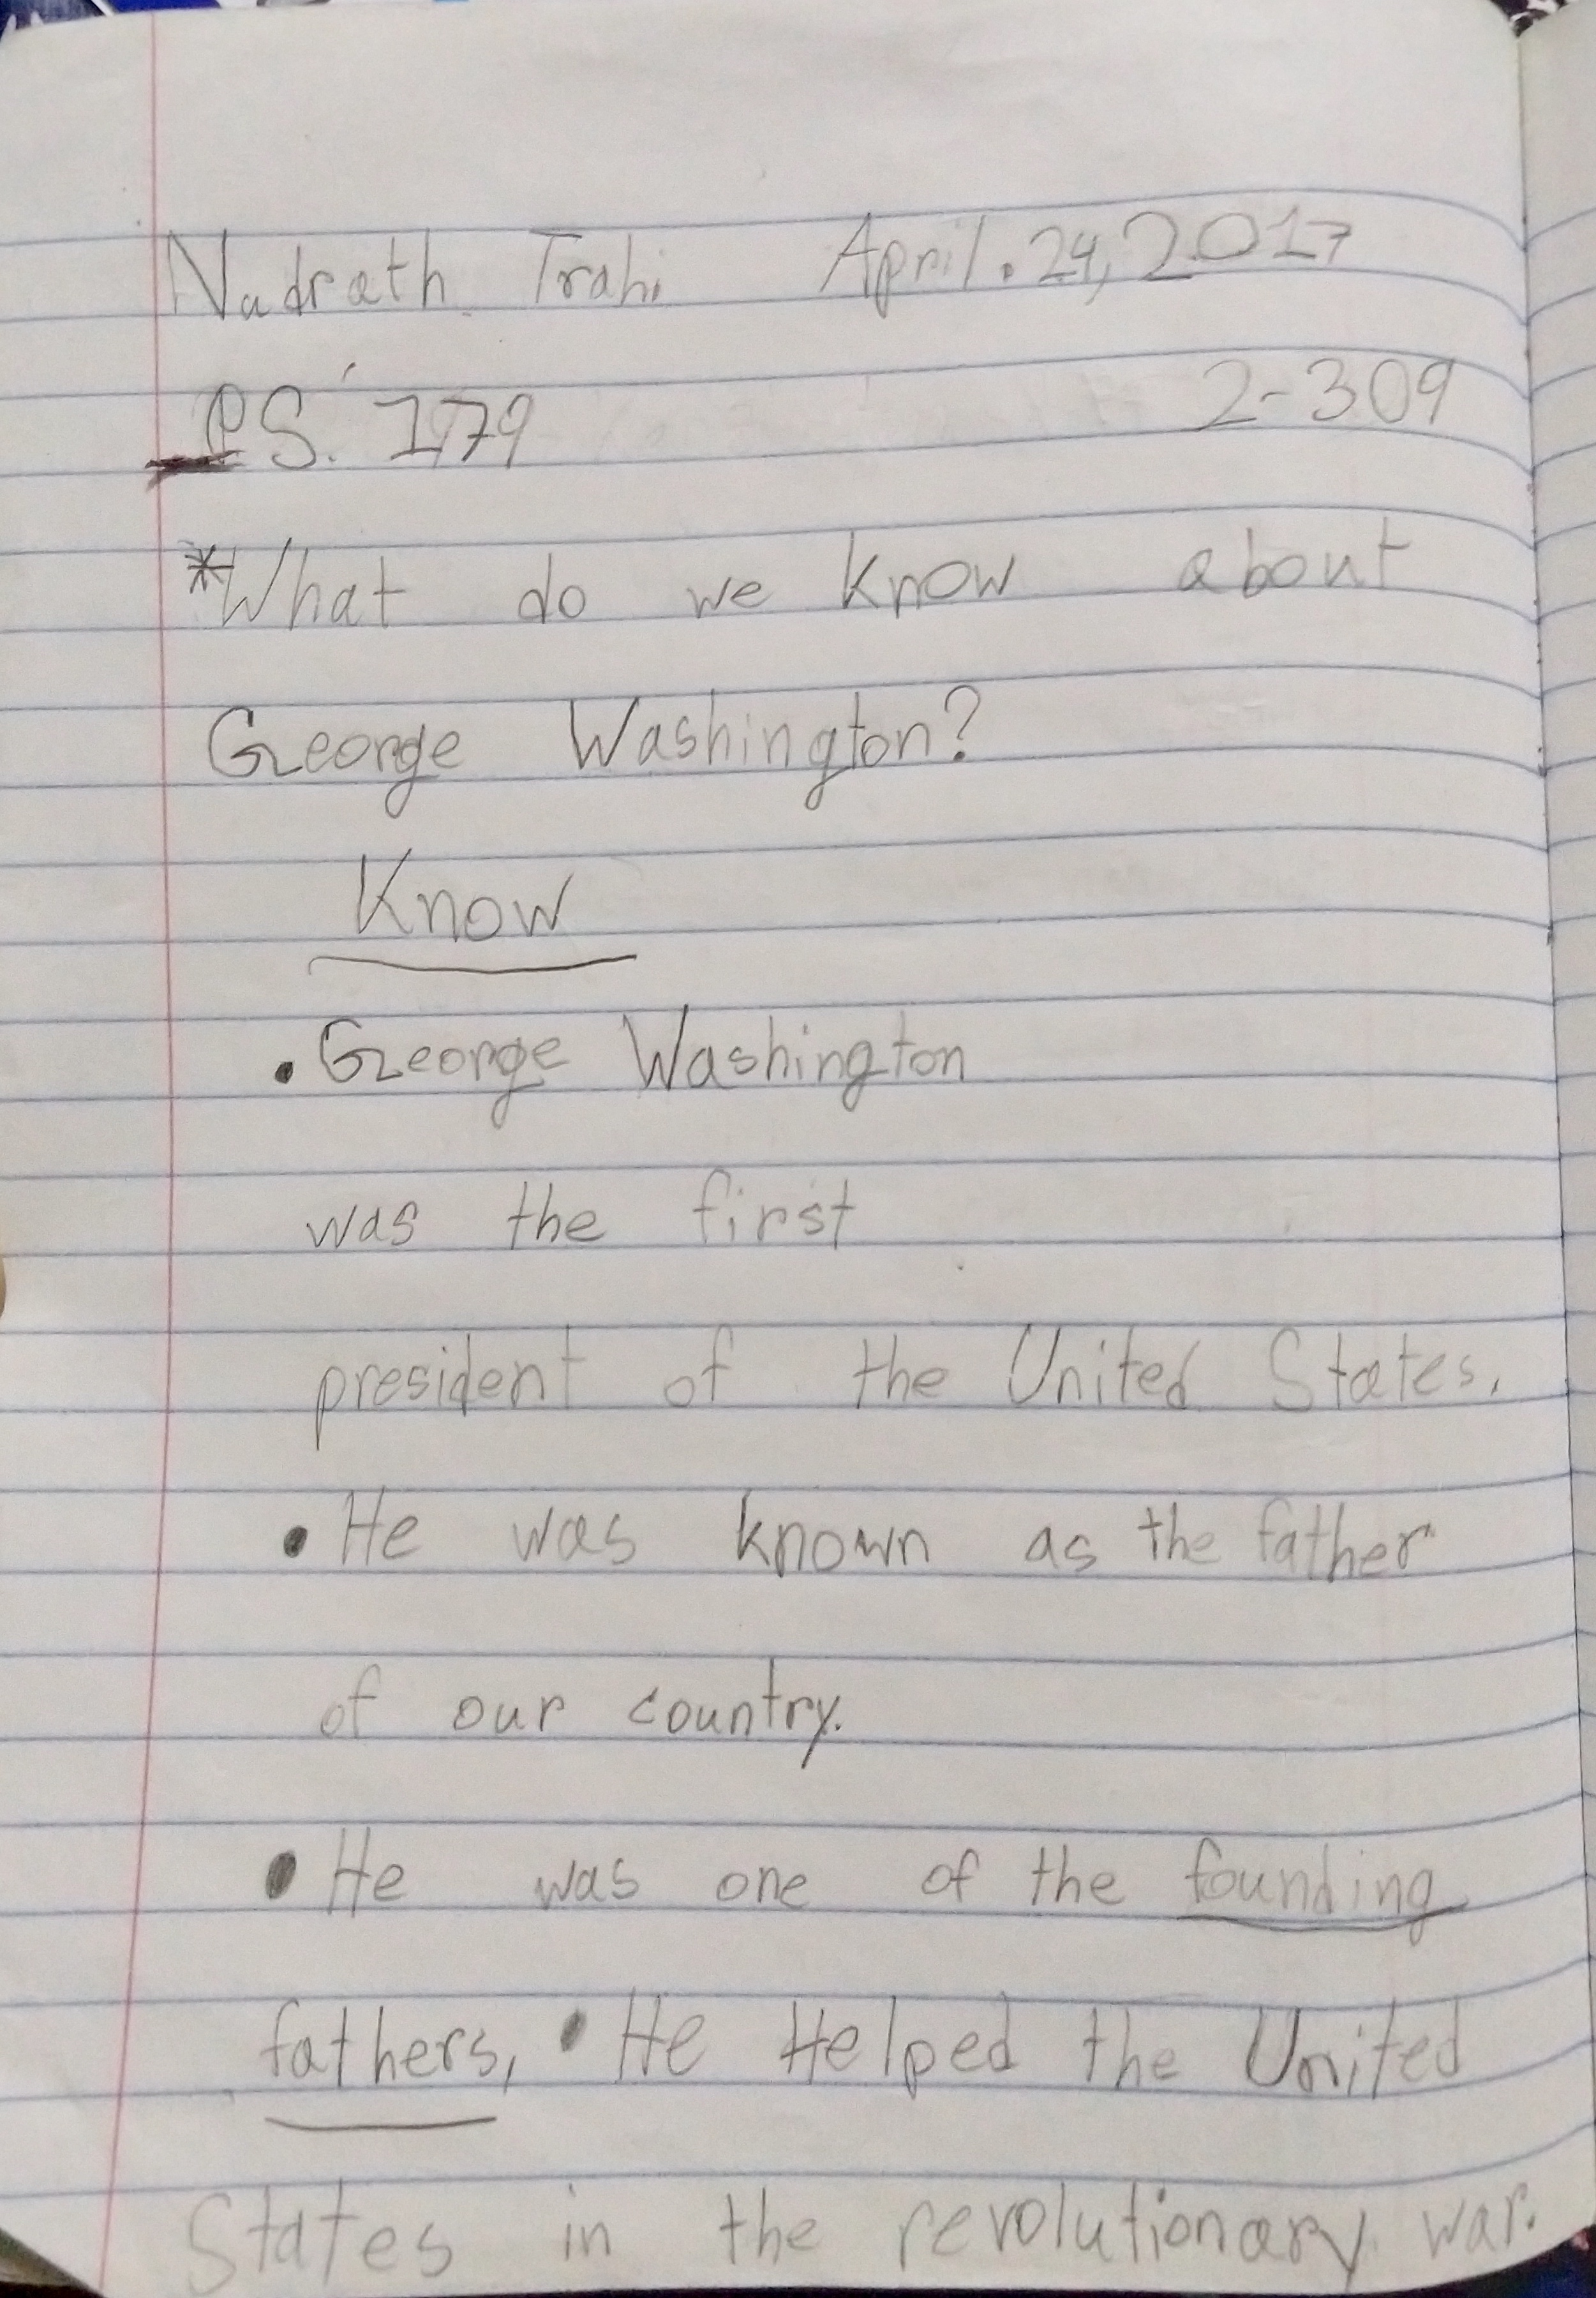 Nadrath Trahi April. 24, 2017
P.S. 179 2-309
*What do we know about
George Washington?
Know
• George Washington
was the first
president of the United States.
• He was known as the father
of our country.
• He was one of the founding
fathers, • He Helped the United
States in the revolutionary war.